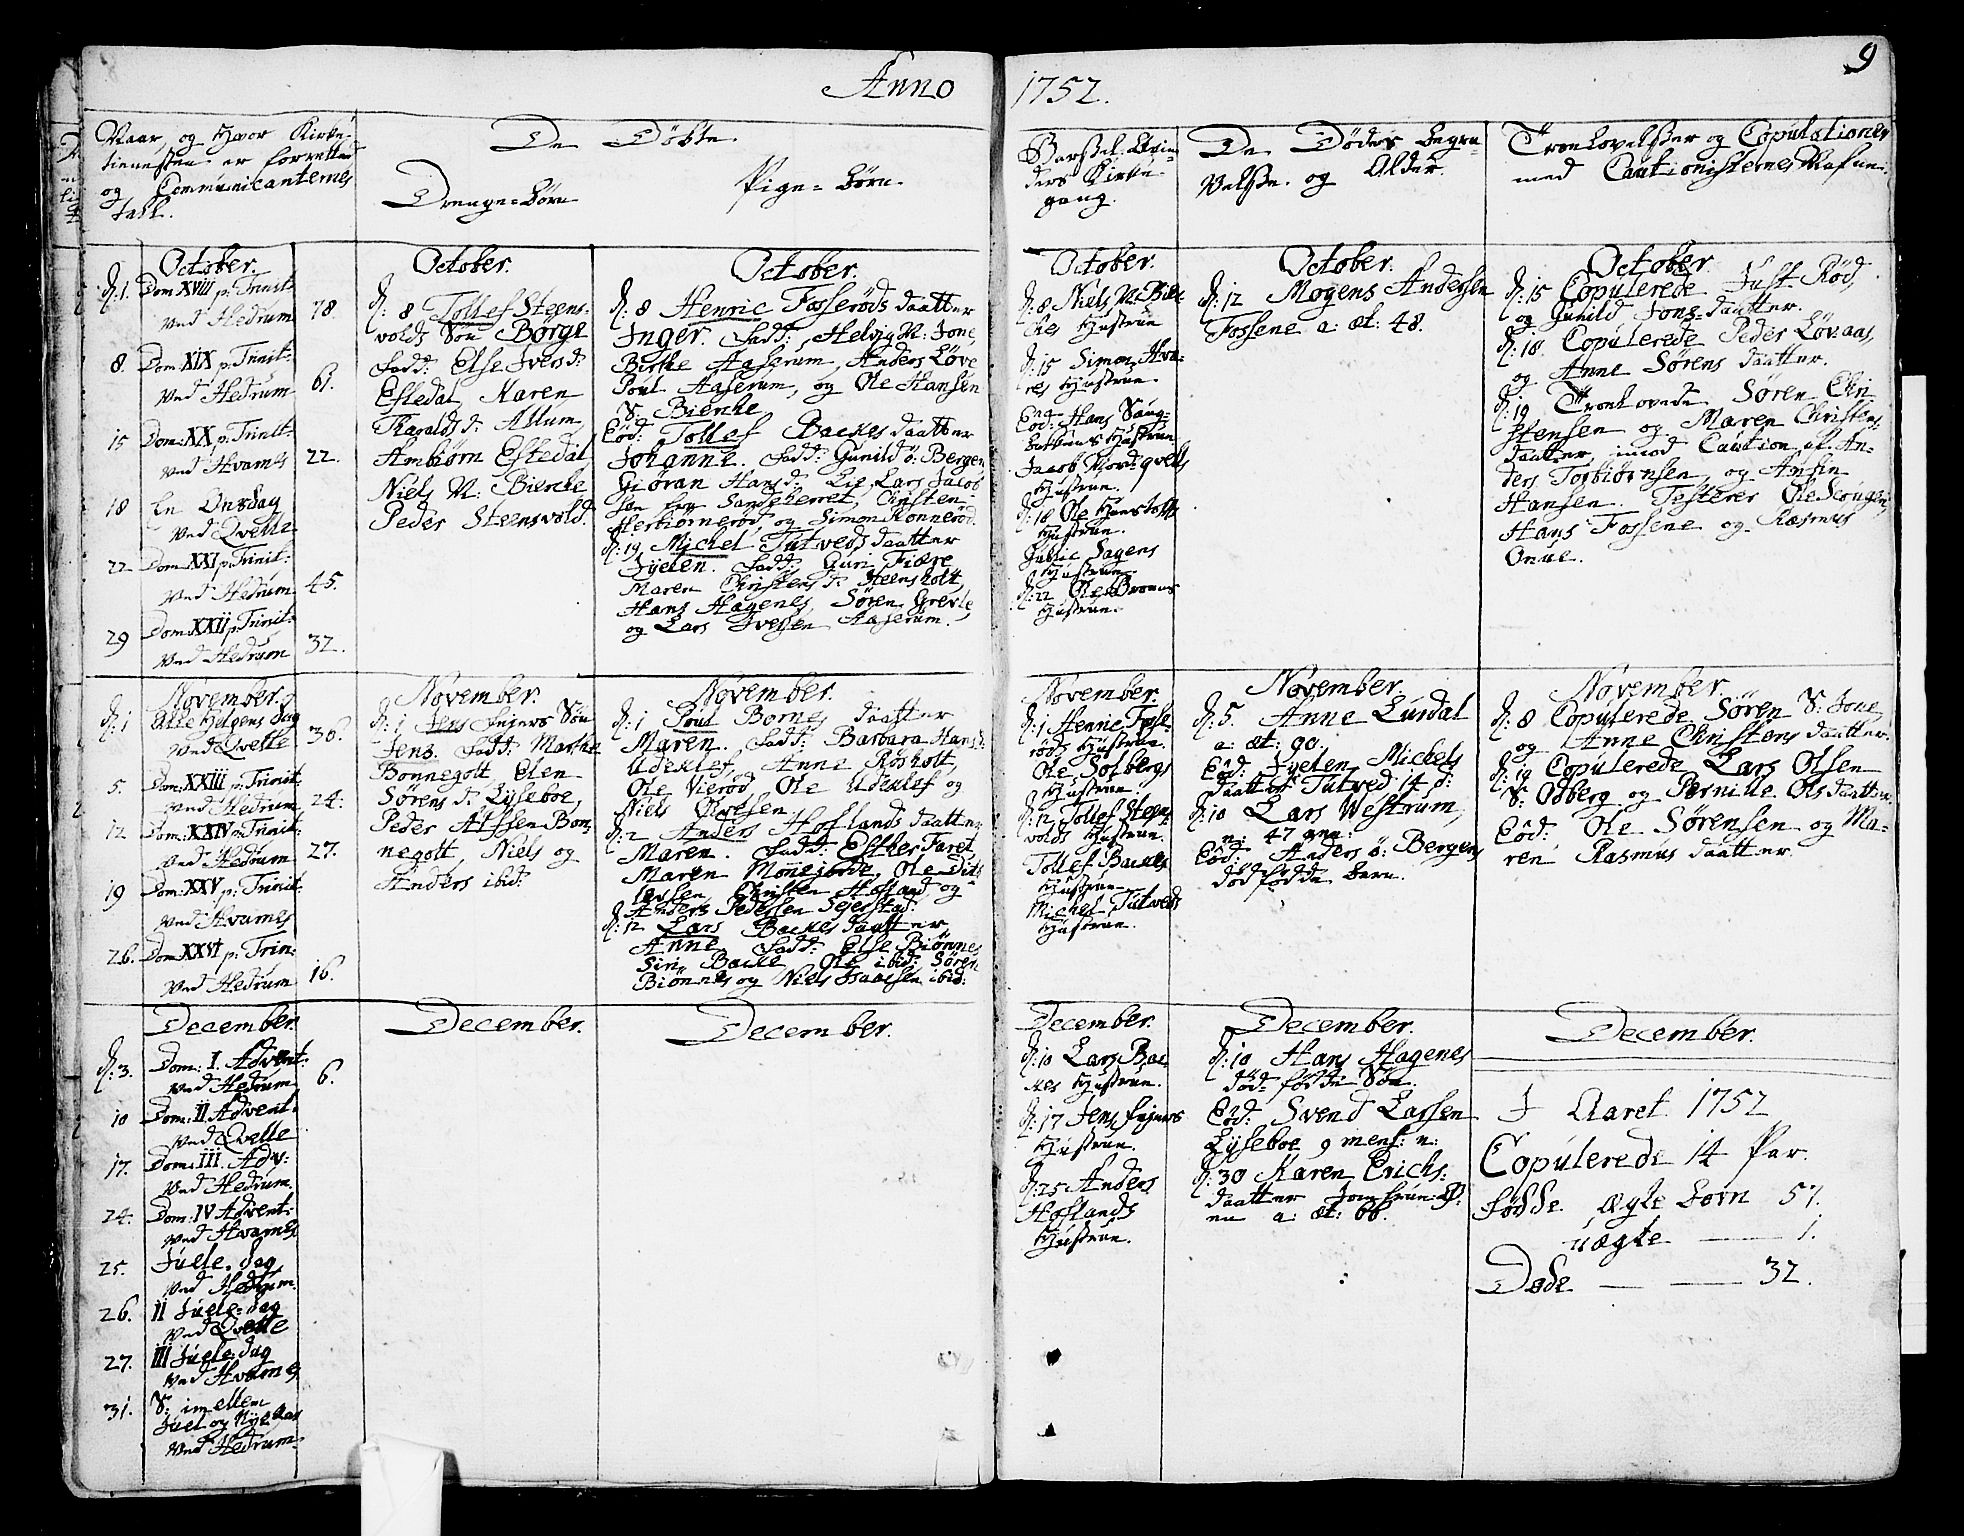 Anno 1752.
9
Naar, og Hvor Kirke-
tienesten er forrettet
og Communicanternes
Tall.
De Døbte.
Drenge-børn
Pige-børn.
Barsel-Qvin-
ders Kirke-
gang.
De Dødes begra-
velse og Alder.
Trolovelser og Copulationer
med Cautionisternes Nafne.
October.
d: 1. Dom XVIII p: Trinit:
ved Hedrum 78.
8. Dom XIX p: Trinit:
ved Hedrum 61.
15 Dom: XX p: Trinit:
ved Hvarnes 22.
18 En Onsdag
ved Qvelle
22 Dom XXI p: Trinit:
ved Hedrum 45.
29 Dom: XXII p: Trinit:
ved Hedrum 32.
October.
d: 8 Tollef Steens-
volds Søn Børge
Fadd: Else Iversd:
Eftedal, Karen
Haraldsd: Allum,
Ambiørn Eftedal
Niels N: Biercke
Peder Steensvold.
October.
d: 8 Henric Fosserøds daatter
Inger. Fadd: Helvig N: Jone,
Birthe Aaserum, Anders Løve
Poul Aaserum, og Ole Hansen
S: Biercke
Eod: Tollef Backes daatter
Johanne. Fadd: Gunild ø: Bergen
Giøran Hansd: Lie, Lars Jacob
sen fra Sandeherret, Christen
Herbiørnerød, og Simon Rønnerød.
d: 19 Michel Tutveds daatter
Iyelen. Fadd: Guri Fiære
Maren Christensd: Steensholt,
Hans Hagenes, Søren Grevle,
og Lars Ivessen Aaserum.
October.
d: 8 Niels N: Bier
ckes Hustrue
d: 15 Simon Hva-
res Hustrue.
Eod: Hans Saug-
backens Hustrue
Jacob Nordqvells
Hustrue.
d: 18 Ole
Hustrue.
Sagens
Hustrue.
d: 22 Ole Broenes
Hustrue.
October.
d: 12 Mogens Andersen
Fossene a: æt: 48.
October.
d: 15 Copulerede Just Rød,
og Gunild Jons-daatter.
d: 18. Copulerede Peder Løvaas,
og Anne Sørens daatter.
d: 19 Trolovede Søren Chri-
stensen og Maren Christens
daatter, imod Caution af An-
ders Torbiørnsen, og Anfin
Hansen. Testerer Ole Scougen,
Hans Fossene og Rasmus
Onue.
November.
d: 1 Alle Helgens dag
ved Qvelle 36.
5. Dom: XXIII p: Trinit
ved Hedrum 24.
12 Dom: XXIV p: Trinit:
ved Hedrum 27.
19 Dom: XXV p: Trinit:
ved Hvarnes
26. Dom XXVI p: Trin:
ved Hedrum 16.
November.
d: 1 Jens Fejers Søn
Jens. Fadd: Marthe
Bonnegolt, Elen
Sørensd: Lyseboe,
Peder Alfsen Bon-
negolt, Niels og
Anders ibid:
November.
d: 1 Poul Bornes daatter
Maren. Fadd: Barbara Hansd:
Udeklef, Anne Røsholt,
Ole Vierød, Ole Udeklef og
Niels Olvessen.
d: 2 Anders Hoflands daatter
Maren. Fadd: Esther Faret
Maren Monejorde, Ole Dit-
lefsen, Christen Hofland og
Anders Pedersen Sejerstad:
d: 12 Lars Backes daatter
Anne. Fadd: Else Biønnes
Siri Backe Ole ibid: Søren
Biønnes og Niels Isachsen ibid:
November.
d: 1 Henric Fosse
røds Hustrue.
Ole Solbergs
Hustrue.
d: 12 Tollef Steens
volds Hustrue.
Tollef Backes
Hustrue
Michel Tutveds
Hustrue.
November.
d: 5. Anne Lurdal
a: æt: 90.
Eod: Iyelen Michels
daatter Tutved 14 d:
d: 10 Lars Westrum,
n: 47 ann:
Eod: Anders ø: Bergens
dødfødde barn.
November.
d: 8 Copulerede Søren S: Jone,
og Anne Christens daatter.
d: 19 Copulerede Lars Olsen
S: Odberg og Pernille Ols daatter.
Eod: Ole Sørensen og Ma-
ren Rasmus daatter.
December.
d: 3. Dom: I. Advent:
ved Hedrum 6.
10 Dom: II Advent.
ved Qvelle
17. Dom: III. Adv:
ved Hedrum.
24. Dom: IV Advent:
ved Hvarnes
25. Juele-dag
ved Hedrum.
26. II Juele-dag
ved Qvelle
27. III Juele-dag
ved Hvarnes
31. S: imellem
Juel og Nye Aar
ved Hedrum
December.
December.
December.
d: 10 Lars Bac
kes Hustrue.
d: 17 Jens Fejers
Hustrue.
d: 25 Anders
Hoflands
Hustrue.
December.
d: 10 Hans Hagenes
død-fødde Søn.
Eod: Svend Larssen
Lyseboe 9 mens: n:
d: 30 Karen Erichs
daatter
a: æt: 66.
December.
I Aaret 1752
Copulerede 14 Par.
Fødde ægte børn 57.
uægte — 1.
Døde — 32.